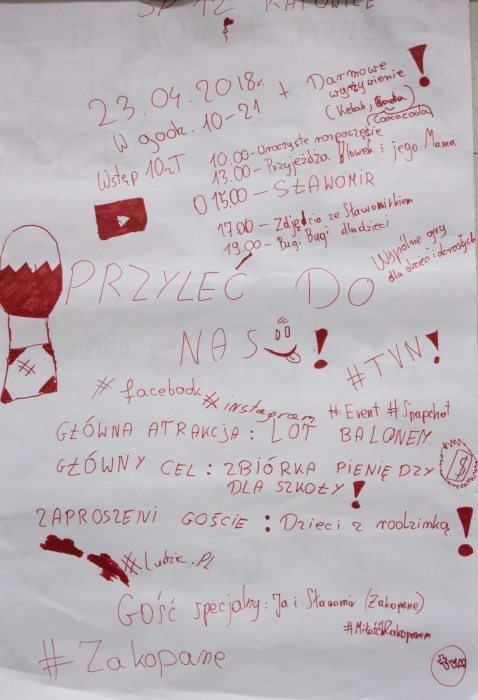 SP 12 KATOWICE
23.04.2018r.
W godz. 10-21
+ Darmowe
wyżywienie !
(Kebab,
Coocacoola)
Wstęp 10zł
10.00 - Uroczyste rozpoczęcie
13.00 - Przyjeżdża Blowek i jego Mama
O 15.00 - SŁAWOMIR
17.00 - Zdjęcia ze Sławomirkiem
19.00 - Bugi Bugi dla dzieci
Wspólne gry
dla dzieci i dorosłych
PRZYLEĆ DO
NAS !
#TVN!
# facebook
# instagram
# Event # Snapchat
GŁÓWNA ATRAKCJA : LOT BALONEM
GŁÓWNY CEL : ZBIÓRKA PIENIĘDZY
DLA SZKOŁY !
ZAPROSZENI GOŚCIE : Dzieci z rodzinką !
#Lubie.Pl
Gość specjalny: Ja i Sławomir (Zakopane)
#MiłośćWZakopanem
# Zakopane